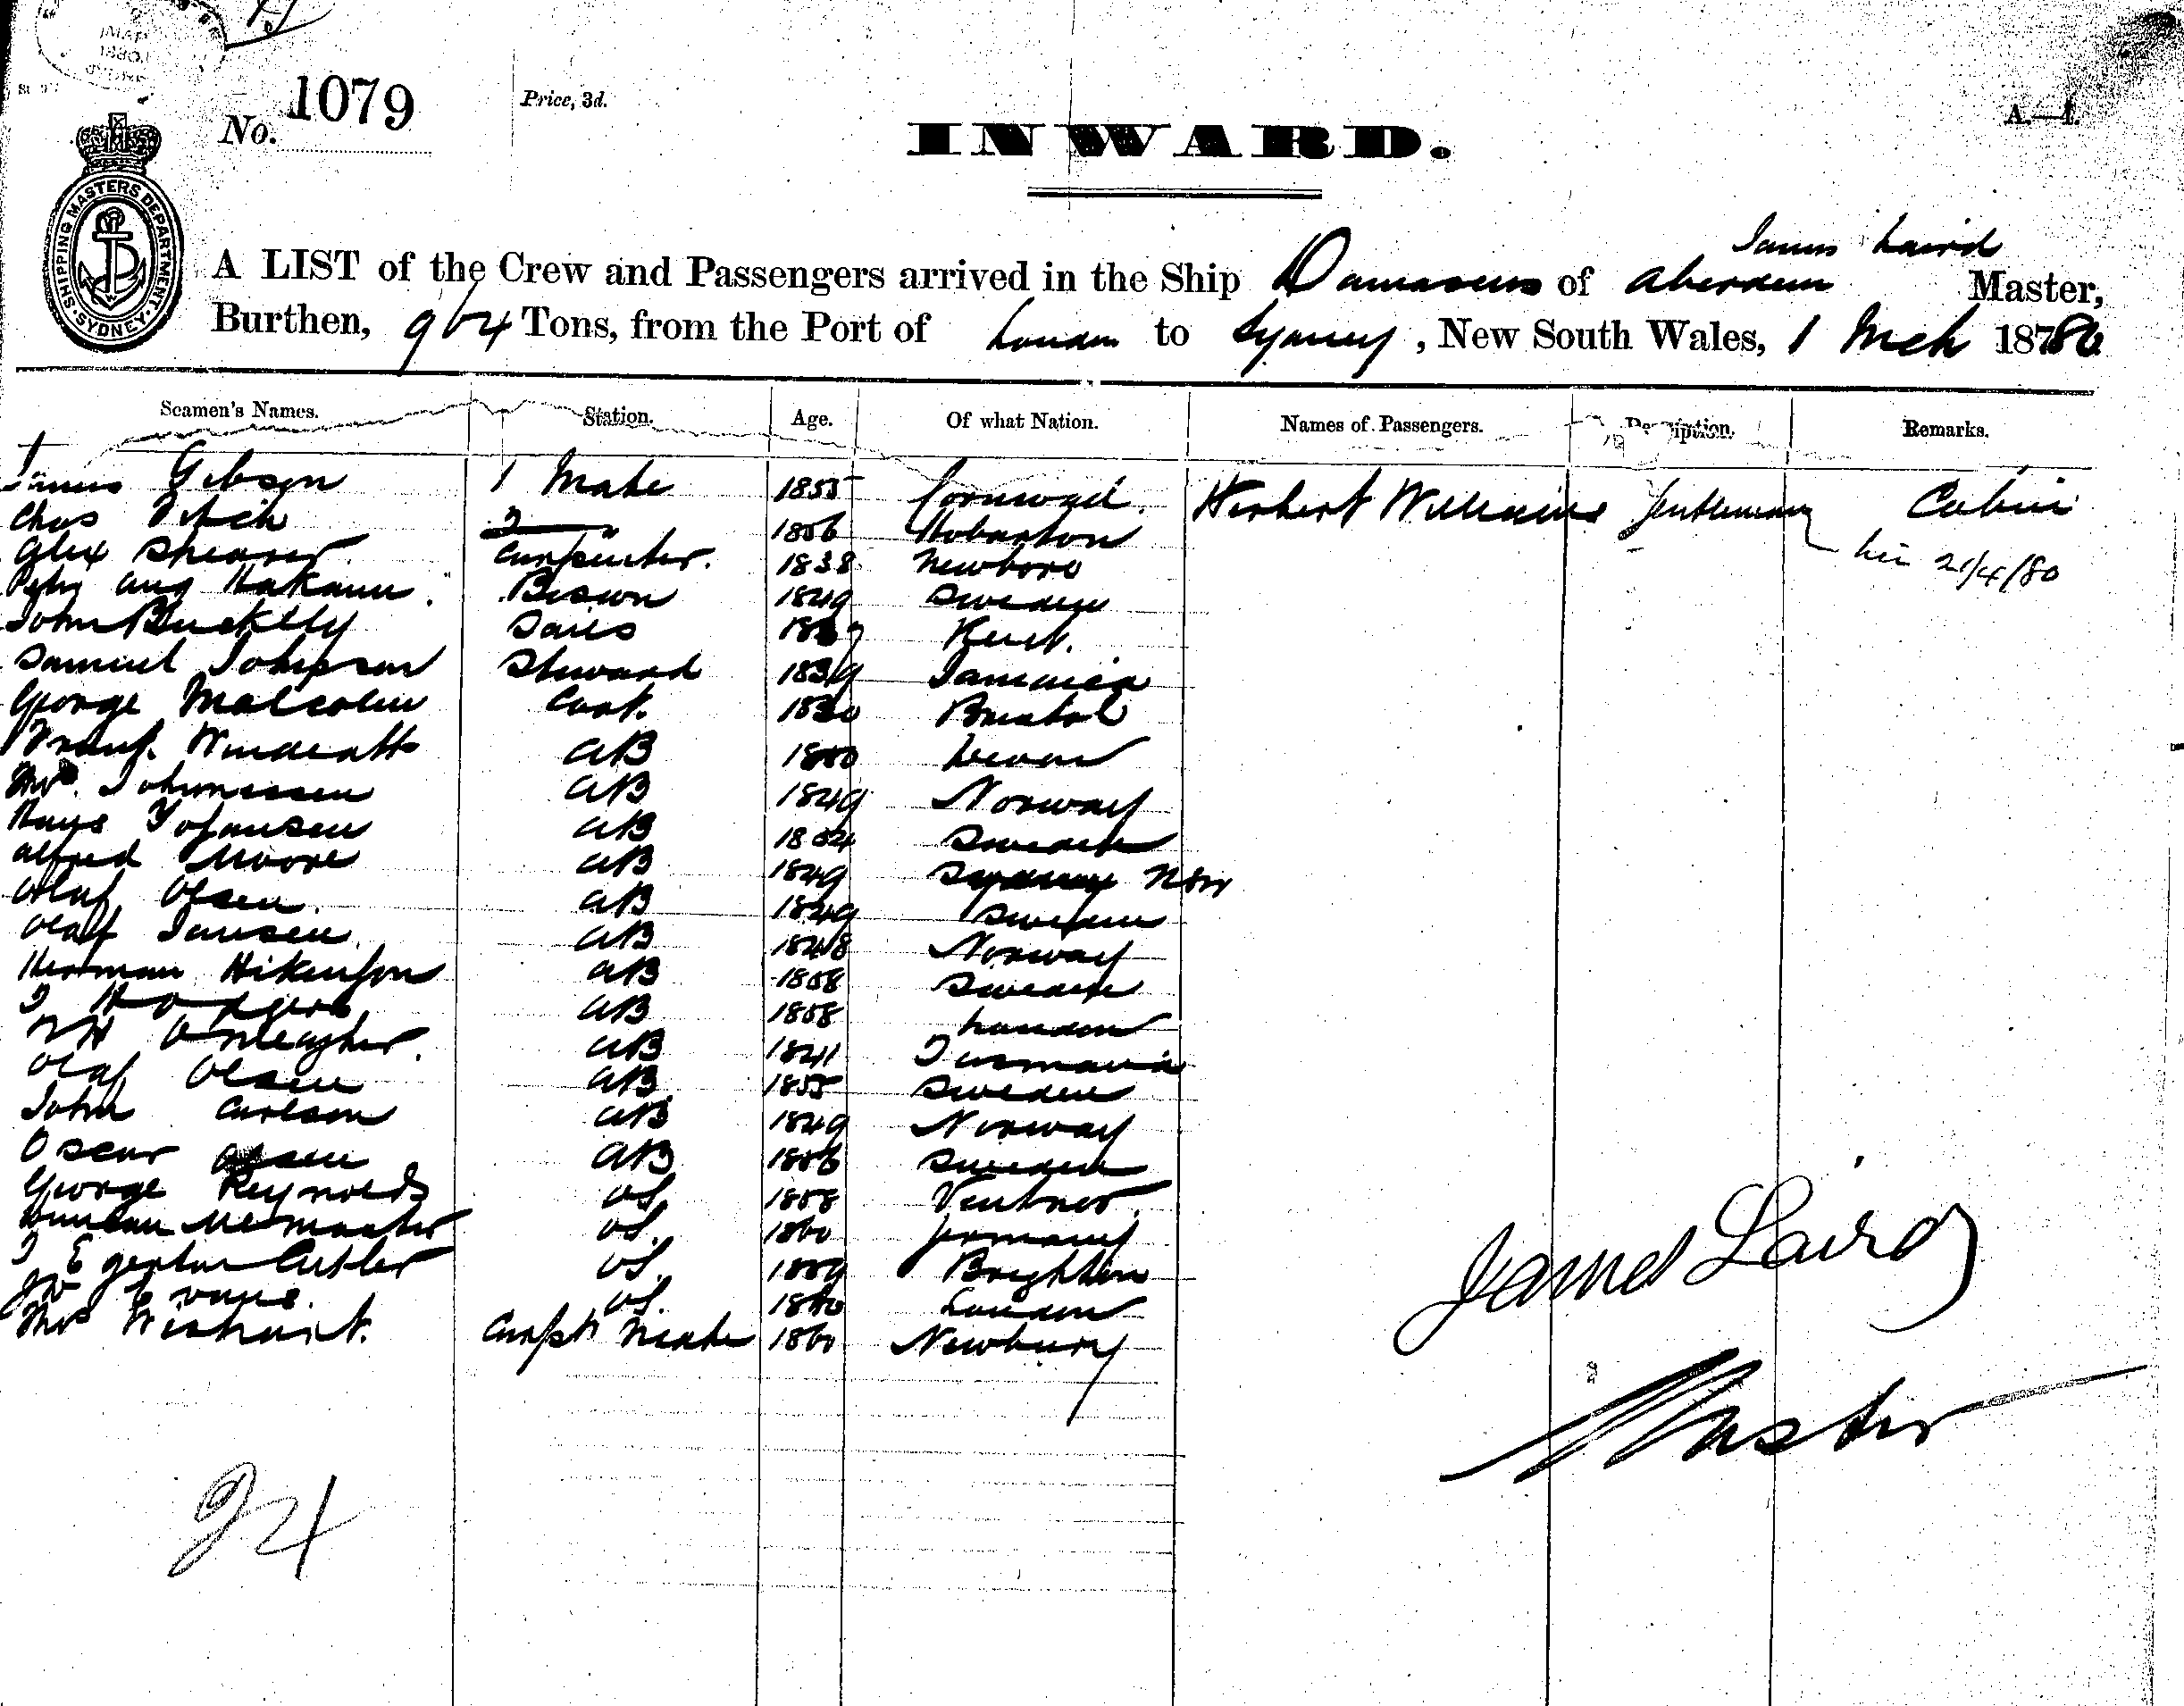 No. 1079
Price, 3d.
INWARD.
A.—1.
SHIPPING MASTERS DEPARTMENT SYDNEY
James Laird
A LIST of the Crew and Passengers arrived in the Ship Damascus of Aberdeen Master,
Burthen, 964 Tons, from the Port of London to Sydney, New South Wales, 1 Mch 1880
Seamen's Names. Station. Age. Of what Nation. Names of Passengers. Description. Remarks.
James Gibson 1 Mate 1855 Cornwall. Herbert Williams Gentleman Cabin
Chas 2 " 1856 Hobarton
Alex Shearer Carpenter. 1838 Newboro 21/4/80
Aug Bosun 1849 Sweden
John Buckelly Sails Kent.
Samuel Johnson Steward 1839 Jamaica
George Malcolm Cook. 1830 Bristol
Frank. Windeatt AB Devon
Thos. Johannessen AB 1849 Norway
Johansen AB 1854 Sweden
Alfred Moore AB 1849 Sydney NSW
Olaf Olsen. AB 1849 Sweden
Olaf Jansen. AB 1848 Norway
Herman AB 1858 Sweden
J Rodgers AB 1858 London
AB 1841 Tasmania
Olaf Olsen AB 1855 Sweden
John Carlson AB 1849 Norway
Oscar AB 1856 Sweden
George Reynolds OS. 1858 Ventnor.
Duncan McMaster OS. 1860 Germany
J Egerton Cutler OS. 1859 Brighton
Evans. OS. 1860 London
Thos Wishart. Carpt Mate 1860 Newbury
James Laird
Master
24